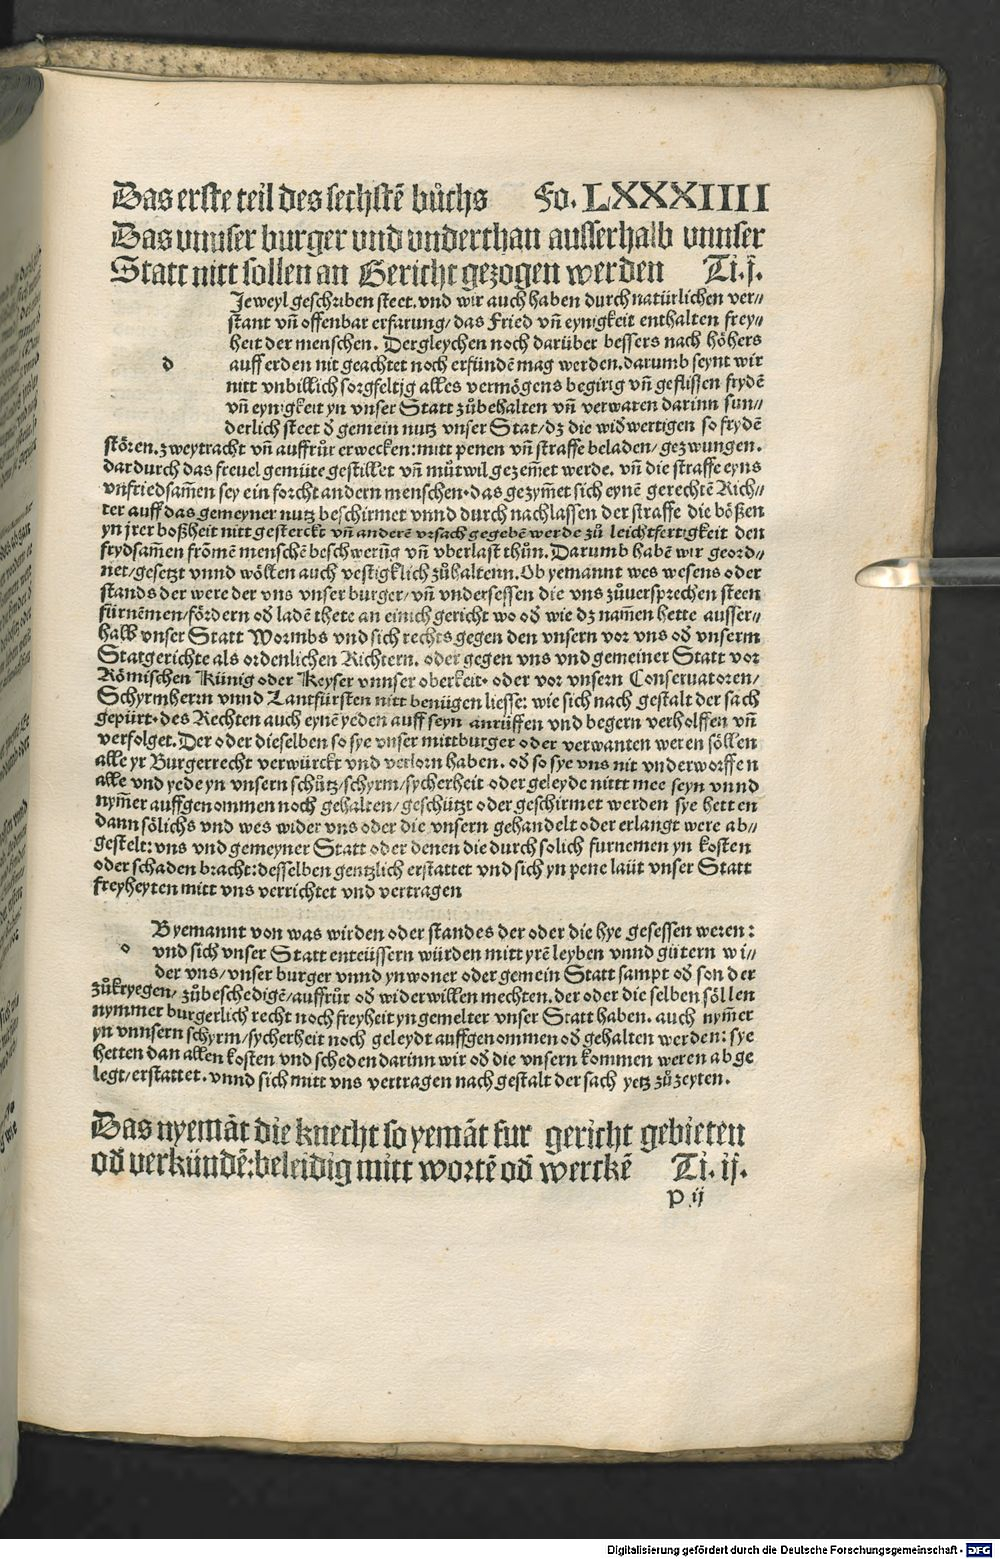 Das erste teil des sechstẽ bůchs Fo. LXXXIIII
Das vnnser burger vnd vnderthan ausserhalb vnnser
Statt nitt sollen an Gericht gezogen werden Ti. j.
d
Jeweyl geschriben steet. vnd wir auch haben durch natürlichen ver//
stant vñ offenbar erfarung/ das Fried vñ eynigkeit enthalten frey//
heit der menschen. Dergleychen noch darüber bessers nach höhers
auff erden nit geachtet noch erfündẽ mag werden. darumb seynt wir
nitt vnbillich sorgfeltig alles vermögens begirig vñ geflissen frydẽ
vñ eynigkeit yn vnser Statt zůbehalten vñ verwaren darinn sun//
derlich steet d̕ gemein nutz vnser Stat/ dz die wid̕wertigen so frydẽ
stören. zweytracht vñ auffrůr erwecken: mitt penen vñ straffe beladen/ gezwungen.
dardurch das freuel gemüte gestillet vñ můtwil gezem̃et werde. vñ die straffe eyns
vnfriedsam̃en sey ein forcht andern menschen. das gezym̃et sich eynẽ gerechtẽ Rich//
ter auff das gemeyner nutz beschirmet vnnd durch nachlassen der straffe die bößen
yn jrer boßheit nitt gesterckt vñ anderẽ vrsach gegebẽ werde zů leichtfertigkeit den
frydsam̃en frömẽ menschẽ beschwerũg vñ vberlast thůn. Darumb habẽ wir geord//
net/ gesetzt vnnd wöllen auch vestigklich zůhaltenn. Ob yemannt wes wesens oder
stands der were der vns vnser burger/ vñ vndersessen die vns zůuersprechen steen
fürnemen/ fördern od̕ ladẽ thete an einich gericht wo od̕ wie dz nam̃en hette ausser//
halb vnser Statt Wormbs vnd sich rechts gegen den vnsern vor vns od̕ vnserm
Statgerichte als ordenlichen Richtern. oder gegen vns vnd gemeiner Statt vor
Römischen Künig oder Keyser vnnser oberkeit. oder vor vnsern Conseruatoren/
Schyrmherrn vnnd Lantfürsten nitt benügen liesse: wie sich nach gestalt der sach
gepürt. des Rechten auch eynẽ yeden auff seyn anrüffen vnd begern verholffen vñ
verfolget. Der oder dieselben so sye vnser mittburger oder verwanten weren söllen
alle yr Burgerrecht verwürckt vnd verlorn haben. od̕ so sye vns nit vnderworffen
alle vnd yede yn vnsern schůtz/ schyrm/ sycherheit oder geleyde nittt mee seyn vnnd
nym̃er auffgenommen noch gehalten/ geschützt oder geschirmet werden sye hetten
dann sölichs vnd wes wider vns oder die vnsern gehandelt oder erlangt were ab//
gestelt: vns vnd gemeyner Statt oder denen die durch solich furnemen yn kosten
oder schaden bracht: desselben gentzlich erstattet vnd sich yn pene laüt vnser Statt
freyheyten mitt vns verrichtet vnd vertragen
o
B yemannt von was wirden oder standes der oder die hye gesessen weren:
vnd sich vnser Statt enteüssern würden mitt yrẽ leyben vnnd gütern wi//
der vns/ vnser burger vnnd ynwoner oder gemein Statt sampt od̕ sonder
zůkryegen/ zůbeschedigẽ/ auffrůr od̕ widerwillen mechten. der oder die selben söllen
nymmer burgerlich recht noch freyheit yn gemelter vnser Statt haben. auch nym̃er
yn vnnsern schyrm/ sycherheit noch geleydt auffgenommen od̕ gehalten werden: sye
hetten dan allen kosten vnd scheden darinn wir od̕ die vnsern kommen weren abge
legt/ erstattet. vnnd sich mitt vns vertragen nach gestalt der sach yetz zů zeyten.
Das nyemãt die knecht so yemãt fur gericht gebieten
od̕ verkündẽ: beleidig mitt wortẽ od̕ wercke͂ Ti. ij.
p ij
Digitalisierung gefördert durch die Deutsche Forschungsgemeinschaft - DFG